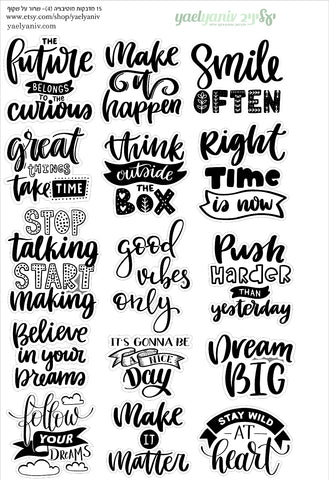 15 מדבקות מוטיבציה (4)- שחור על שקוף
www.etsy.com/shop/yaelyaniv
yaelyaniv.com
yaelyaniv יעליניב
THE
future
BELONGS
TO THE
curious
Make
it
happen
Smile
OFTEN
great
THINGS
take TIME
think
outside
THE
BOX
Right
Time
is now
STOP
talking
START
making
good
vibes
only
Push
HARDER
THAN
yesterday
Believe
in your
Dreams
IT'S GONNA BE
A NICE
Day
Dream
BIG
follow
YOUR
DREAMS
Make
IT
Matter
STAY WILD
AT
heart